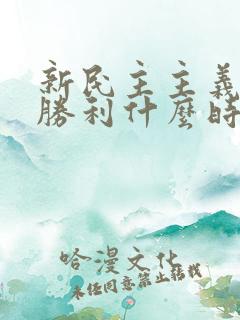 新民主主義
勝利什麼時
哈漫文化
未经同意禁止转载